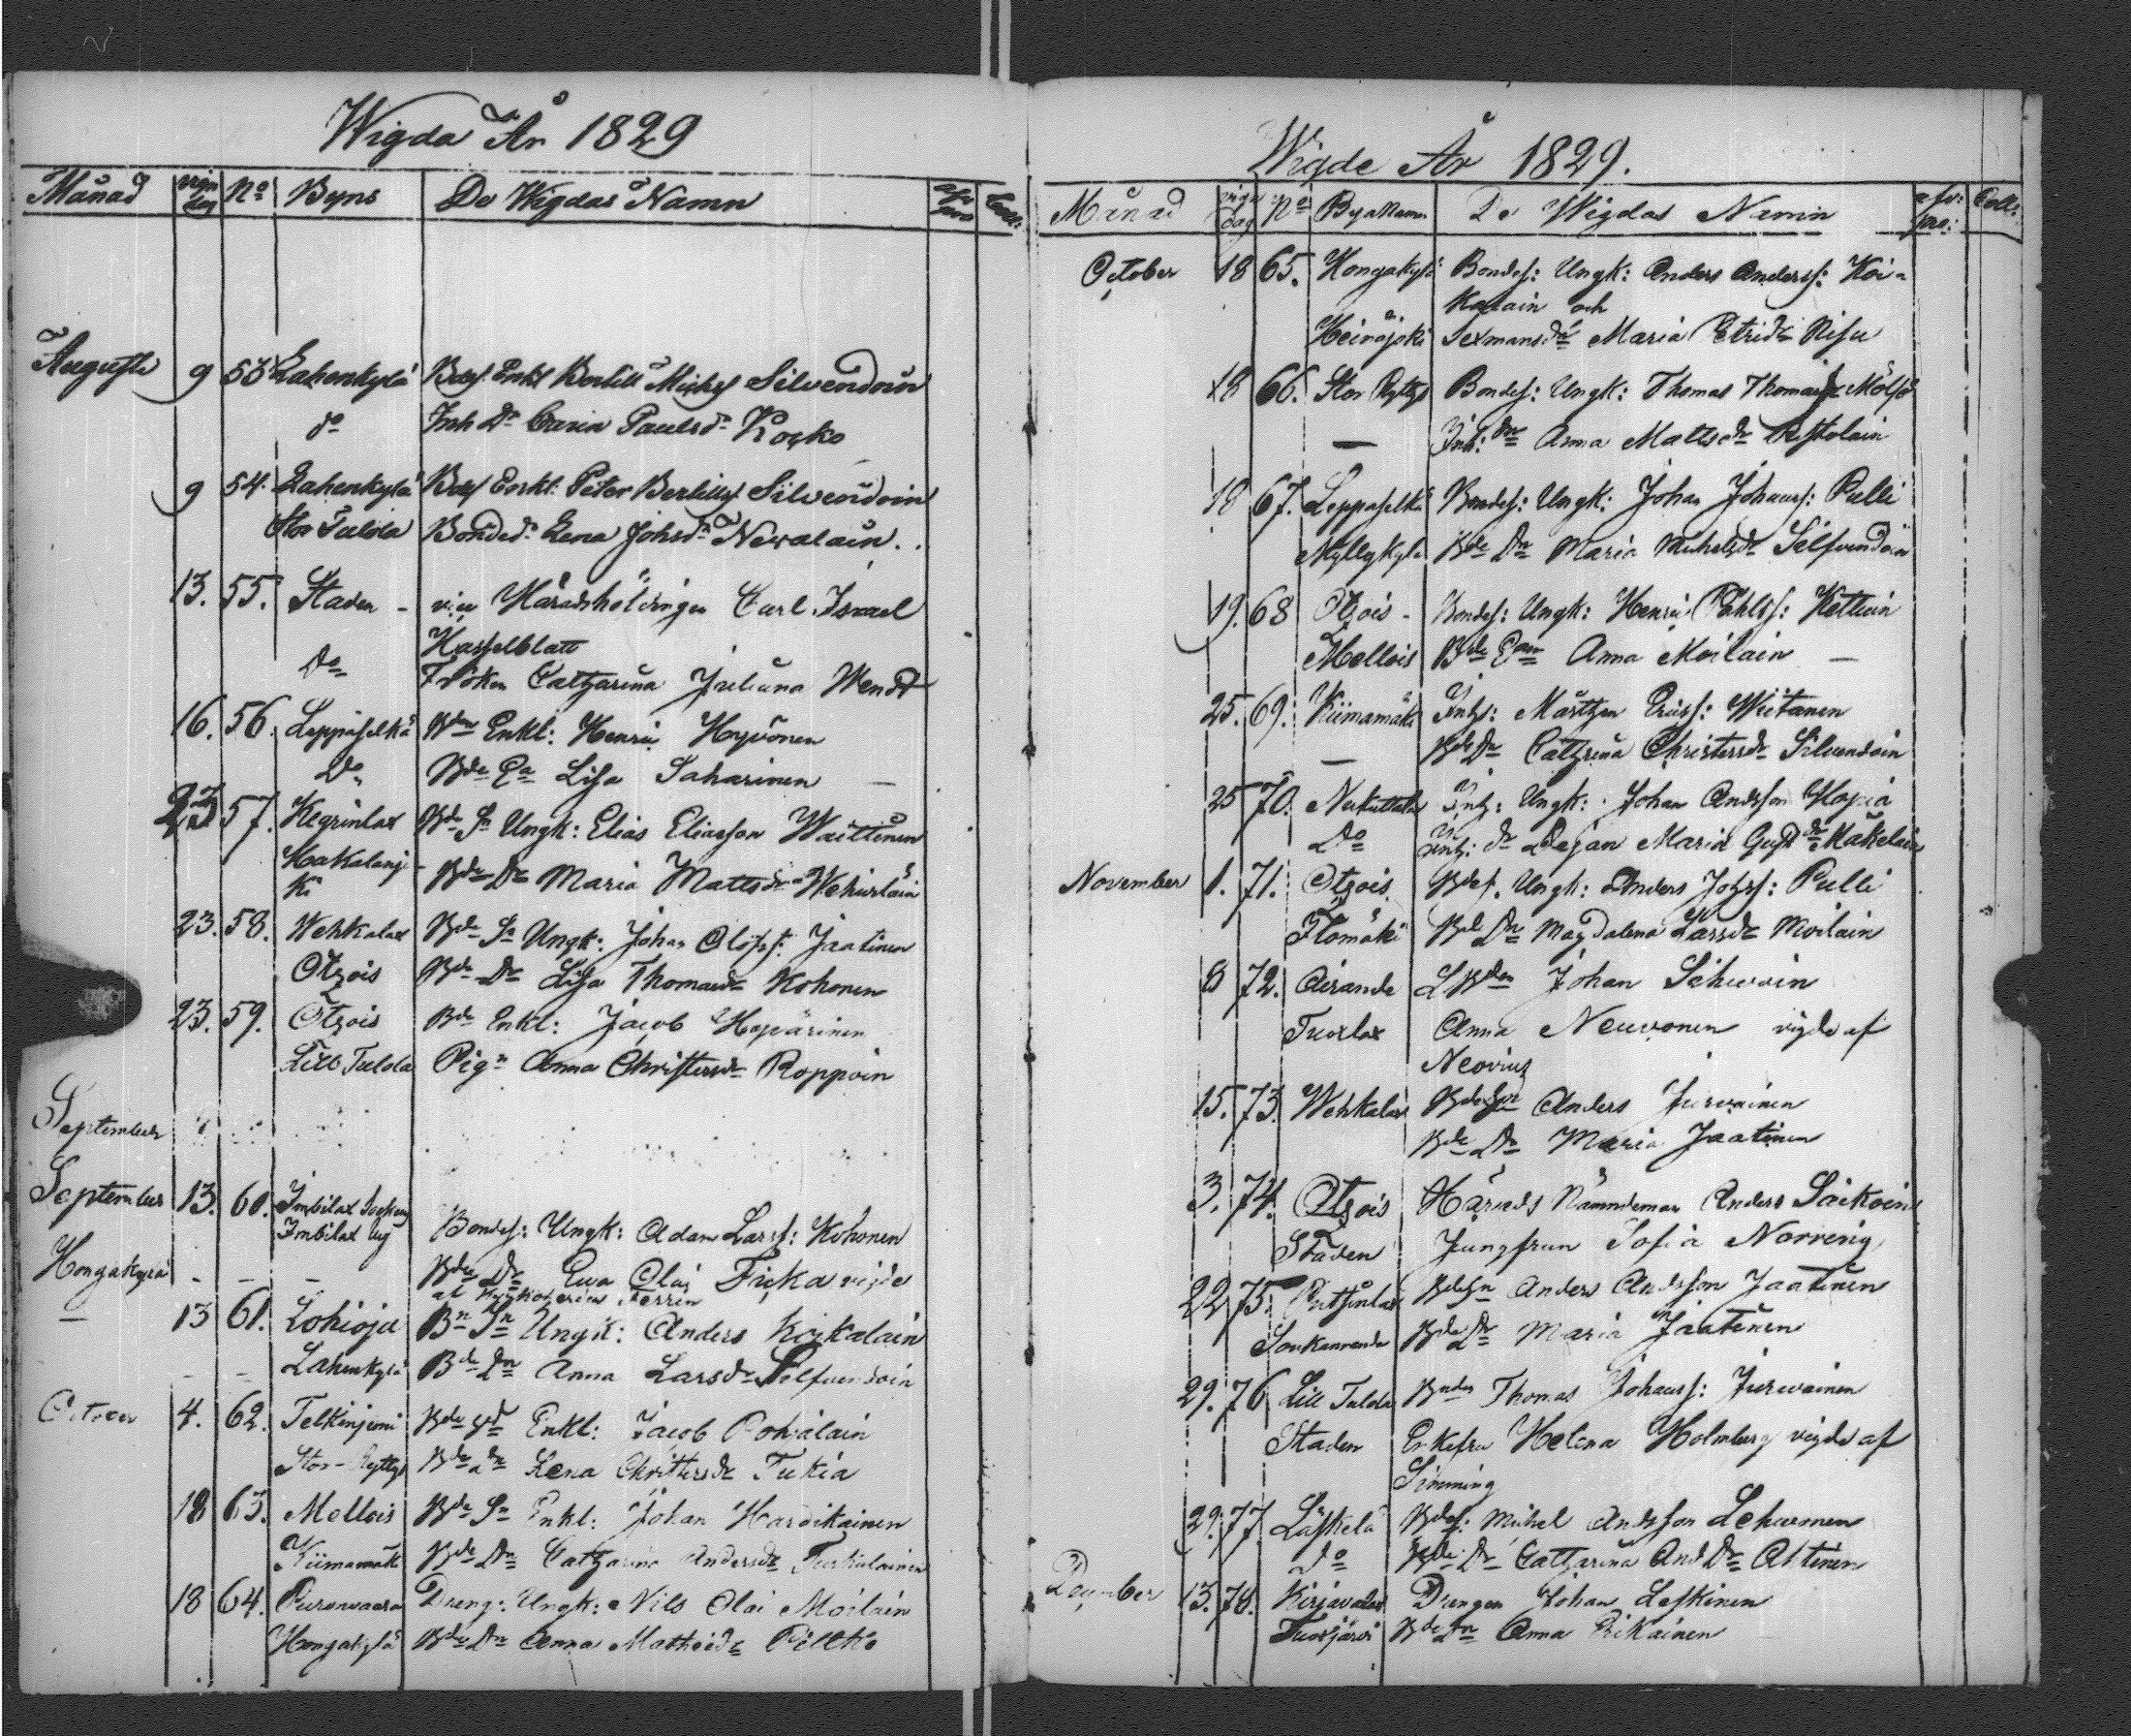 Wigda År 1829
Månad vign dag No Byns De Wigdas Namn Coll:
Augusti 9 53 Lahenkylä Bdes Enkl Bertill Michels Silvendoin
do Inh Dr Carin Paulsdr Kocko
9 54. Lahenkylä Bdes Enkl. Peter Bertills Silvendoin
Stor Tulola Bonded. Lena Johsdr Nevalain.
13. 55. Staden - vice Häradshöfdingen Carl Israel
Hasselblatt
Do Fröken Catharina Juliana Wendt
16. 56. Leppäselkä Bden Enkl: Henric Hyvönen
Do Bde Ea Lisa Saharinen
23 57. Kegrinlax Bde Sn Ungk: Elias Eliasson Waittinen
Hakalanjo-
ki Bde Dr Maria Mattsdr Wehviläin
23. 58. Wehkalax Bde Sn Ungk: Johan Olofss: Jaatinen
Otsois Bde Dr Lisa Thomasdr Kohonen
23. 59. Otsois Bde Enkl: Jacob Hyvärinen
Lill Tulola Pign Anna Christersdr Roppoin
September
September 13. 60. Imbilax
Imbilax Bondes: Ungk: Adam Larss: Kohonen
Hongakylä - - - Bde Dr Ewa Olai Fiska vigde
af Kyrkoherden
— 13 61. Lohioja Bn Sn Ungk: Anders Koikalain
- - Lahenkylä Bde Dn Anna Larsdr Silfvendoin
October 4. 62. Telkinjemi Bde Enkl: Jacob Pohjalain
Stor-Ryttys Bde Dr Lena Christersdr Tukia
18 63. Mellois Bde Sn Enkl: Johan Harvikainen
Kiimamäki Bde Dr Catharina Andersdr Turkulainen
18 64. Puronvaara Dreng: Ungk: Nils Olai Moilain
Hongakylä Bde Dr Anna Mathiedr
Wigde År 1829.
Månad vign dag No Byanamn De Wigdas Namn Coll:
October 18 65. Hongakylä Bondes: Ungk: Anders Anderss: Koi-
kalain och
Heinäjoki Sexmansdr Maria Petridr Risu
18 66. Stor Ryttys Bondes: Ungk: Thomas Mölsö
— Inh: dr Anna Mattsdr Ristolain
18 67. Leppäselkä Bondes: Ungk: Johan Johanss: Pulli
Myllykylä Bde Dr Maria Michelsdr Silfvendoin
19. 68 Otsois - Bondes: Ungk: Henric Påhlss: Kettuin
Mellois Bde Eam Anna Moilain —
25. 69. Kiimamäki Inhs: Mårthen Ericss: Wiitanen
— Bde Dr Cathrina Christersdr Silvendoin
25 70. Inhs: Ungk: Johan Andsson Hapia
Do inhs: dr Maria Gustdr Mäkeläin
November 1. 71. Otsois Bdes. Ungk: Anders Johss: Pulli
Ilomäki Bde Dr Magdalena Larsdr Moilain
8 72. Airanda LBden Johan Sihvoin
Tuoxlax Anna Neuvonen vigde af
Neovius
15. 73. Wehkalax Bde Sn Anders Jurvainen
Bde Dr Maria Jaatinen
3. 74. Otsois Härads Nämndeman Anders Säikoin
Staden Jungfrun Sofia Norring
22 75. Putsinlax Bde Sn Anders Andsson Jaatinen
Sonkanranda Bde Dr Maria Jaatinen
29. 76 Lill Tulola Bnden Thomas Johanss: Jurvainen
Staden Enkefru Helena Holmberg vigde af
Simming
29. 77. Läskelä Bdes: Michel Andsson Lehurmen
do Bde Dr Catharina And.Dr Attinen
December 13. 78. Kirjavalax Drengen Johan Leskinen
Tuoxjärvi Bde Dn Anna Pikainen